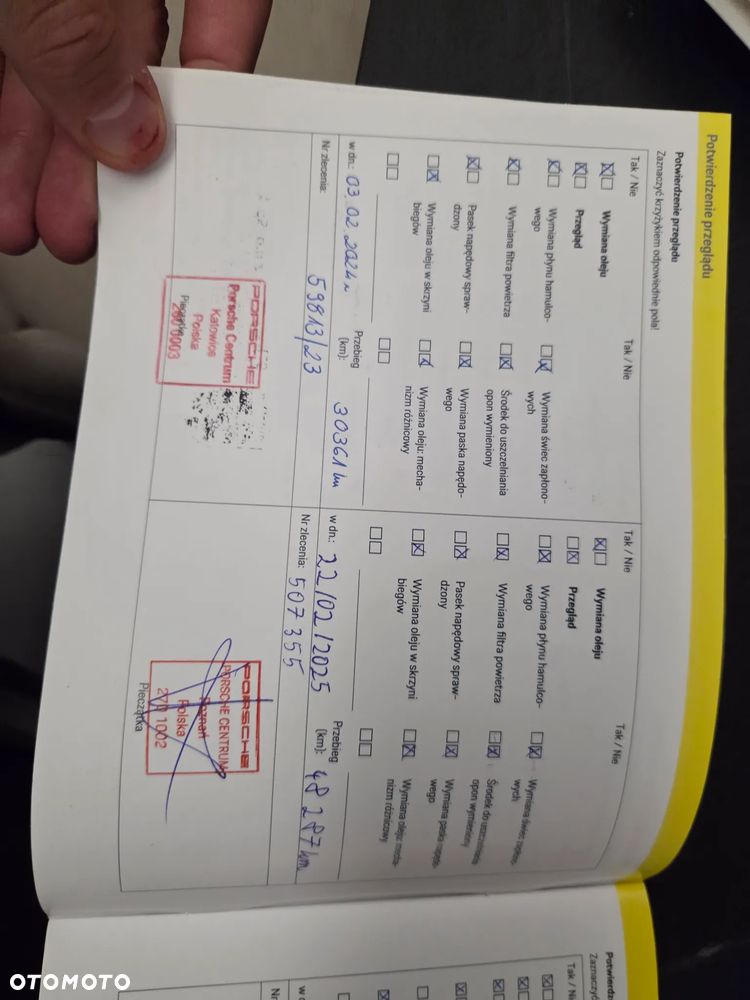 Potwierdzenie przeglądu
Potwierdzenie przeglądu
Zaznaczyć krzyżykiem odpowiednie pola!
Tak / Nie
Wymiana oleju
Przegląd
Wymiana płynu hamulco-
wego
Wymiana filtra powietrza
Pasek napędowy spraw-
dzony
Wymiana oleju w skrzyni
biegów
Tak / Nie
Wymiana świec zapłono-
wych
Środek do uszczelniania
opon wymieniony
Wymiana paska napędo-
wego
Wymiana oleju: mecha-
nizm różnicowy
w dn.: 03.02.2024r
Przebieg
(km): 30361 km
Nr zlecenia: 59813/23
PORSCHE
Porsche Centrum
Katowice
Polska
260 0003
Pieczątka
Tak / Nie
Wymiana oleju
Przegląd
Wymiana płynu hamulco-
wego
Wymiana filtra powietrza
Pasek napędowy spraw-
dzony
Wymiana oleju w skrzyni
biegów
Tak / Nie
Wymiana świec zapłono-
wych
Środek do uszczelniania
opon wymieniony
Wymiana paska napędo-
wego
Wymiana oleju: mecha-
nizm różnicowy
w dn.: 22/02/2025
Przebieg
(km): 48 287 km
Nr zlecenia: 507355
PORSCHE
PORSCHE CENTRUM
Poznań
Polska
270 1002
Pieczątka
Potwierdz
Zaznaczyć
Tak / N
w d
Nr
OTOMOTO